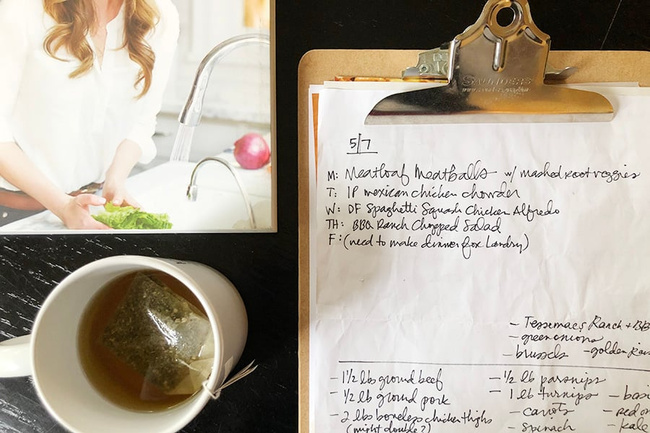 SAUNDERS
5/7
M: Meatloaf Meatballs w/ mashed root veggies
T: IP mexican chicken chowder
W: DF Spaghetti Squash Chicken Alfredo
TH: BBQ Ranch Chopped Salad
F: (need to make dinner for Landry)
- Tessemaes Ranch + BB
- green onions
- brussels - golden
- 1 1/2 lb ground beef
- 1/2 lb ground pork
- 2 lbs boneless chicken thighs
(might double?)
- 1/2 lb parsnips
- 1 lb turnips
- carrots
- spinach
- basi
- red on
- kale